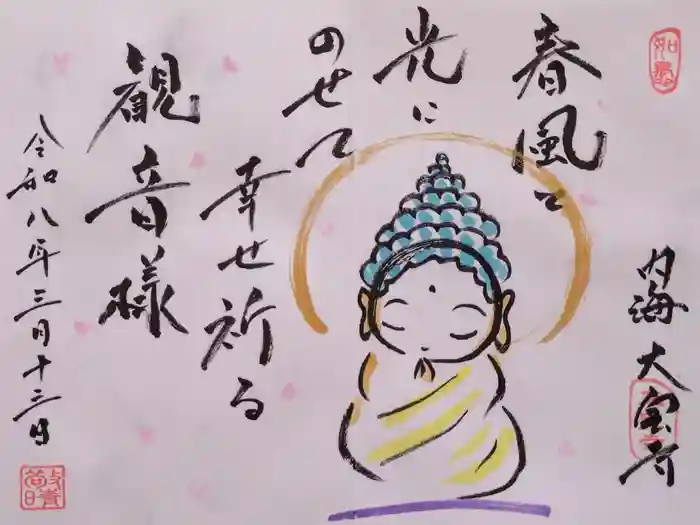 春風と
光に
のせて
幸せ祈る
観音様
令和八年三月十三日
内海 大宝寺